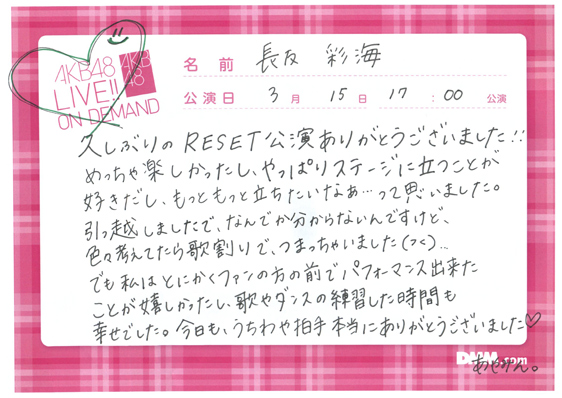 AKB48
LIVE!!
ON DEMAND
AKB
48
名前 長友 彩海
公演日 3月 15日 17:00 公演
久しぶりのRESET公演ありがとうございました!!
めっちゃ楽しかったし、やっぱりステージに立つことが
好きだし、もっともっと立ちたいなぁ…って思いました。
引っ越しましたで、なんでか分からないんですけど、
色々考えてたら歌割りで、つまっちゃいました(つく)..
でも私はとにかくファンの方の前でパフォーマンス出来た
ことが嬉しかったし、歌やダンスの練習した時間も
幸せでした。今日も、うちわや拍手本当にありがとうございました♡
DMM.com